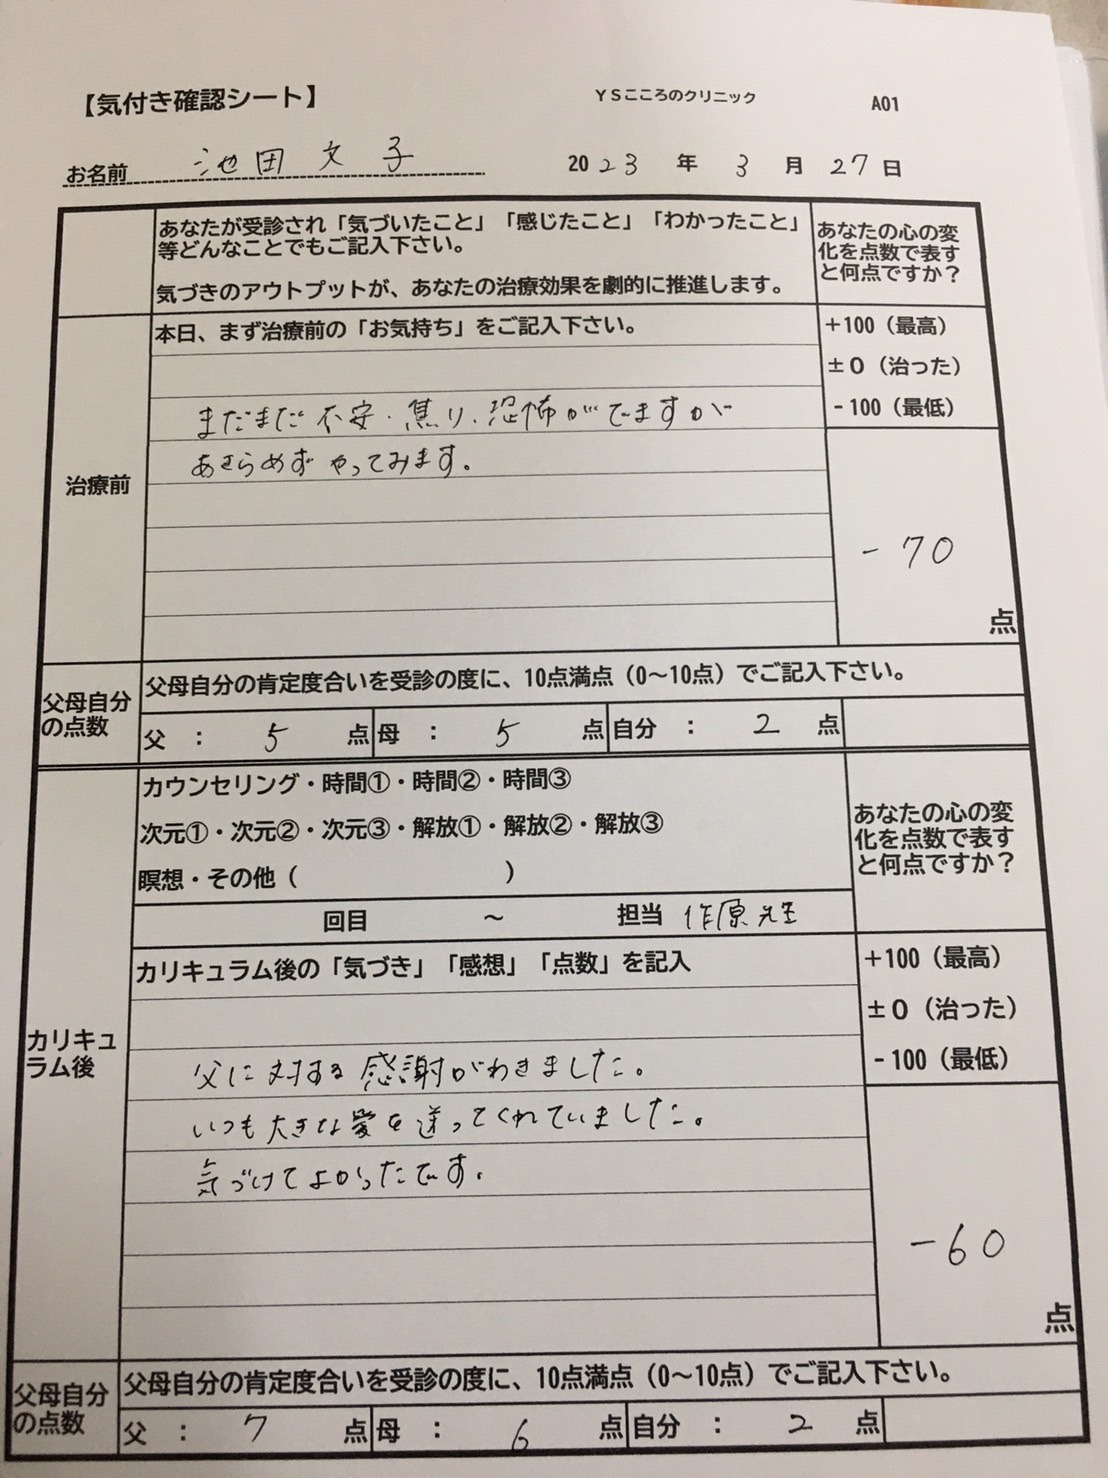 【気付き確認シート】
ＹＳこころのクリニック
A01
お名前 池田文子
2023年3月27日
あなたが受診され「気づいたこと」「感じたこと」「わかったこと」
等どんなことでもご記入下さい。
気づきのアウトプットが、あなたの治療効果を劇的に推進します。
あなたの心の変
化を点数で表す
と何点ですか？
治療前
本日、まず治療前の「お気持ち」をご記入下さい。
+100（最高）
±０（治った）
-100（最低）
まだまだ不安・焦り、恐怖がでますが
あきらめずやってみます。
-70
点
父母自分
の点数
父母自分の肯定度合いを受診の度に、10点満点（0～10点）でご記入下さい。
父：5点 母：5点 自分：2点
カリキュ
ラム後
カウンセリング・時間①・時間②・時間③
次元①・次元②・次元③・解放①・解放②・解放③
瞑想・その他（　　　）
あなたの心の変
化を点数で表す
と何点ですか？
回目 ～ 担当 作原先生
カリキュラム後の「気づき」「感想」「点数」を記入
+100（最高）
±０（治った）
-100（最低）
父に対する感謝がわきました。
いつも大きな愛を送ってくれていました。
気づけてよかったです。
-60
点
父母自分
の点数
父母自分の肯定度合いを受診の度に、10点満点（0～10点）でご記入下さい。
父：7点 母：6点 自分：2点